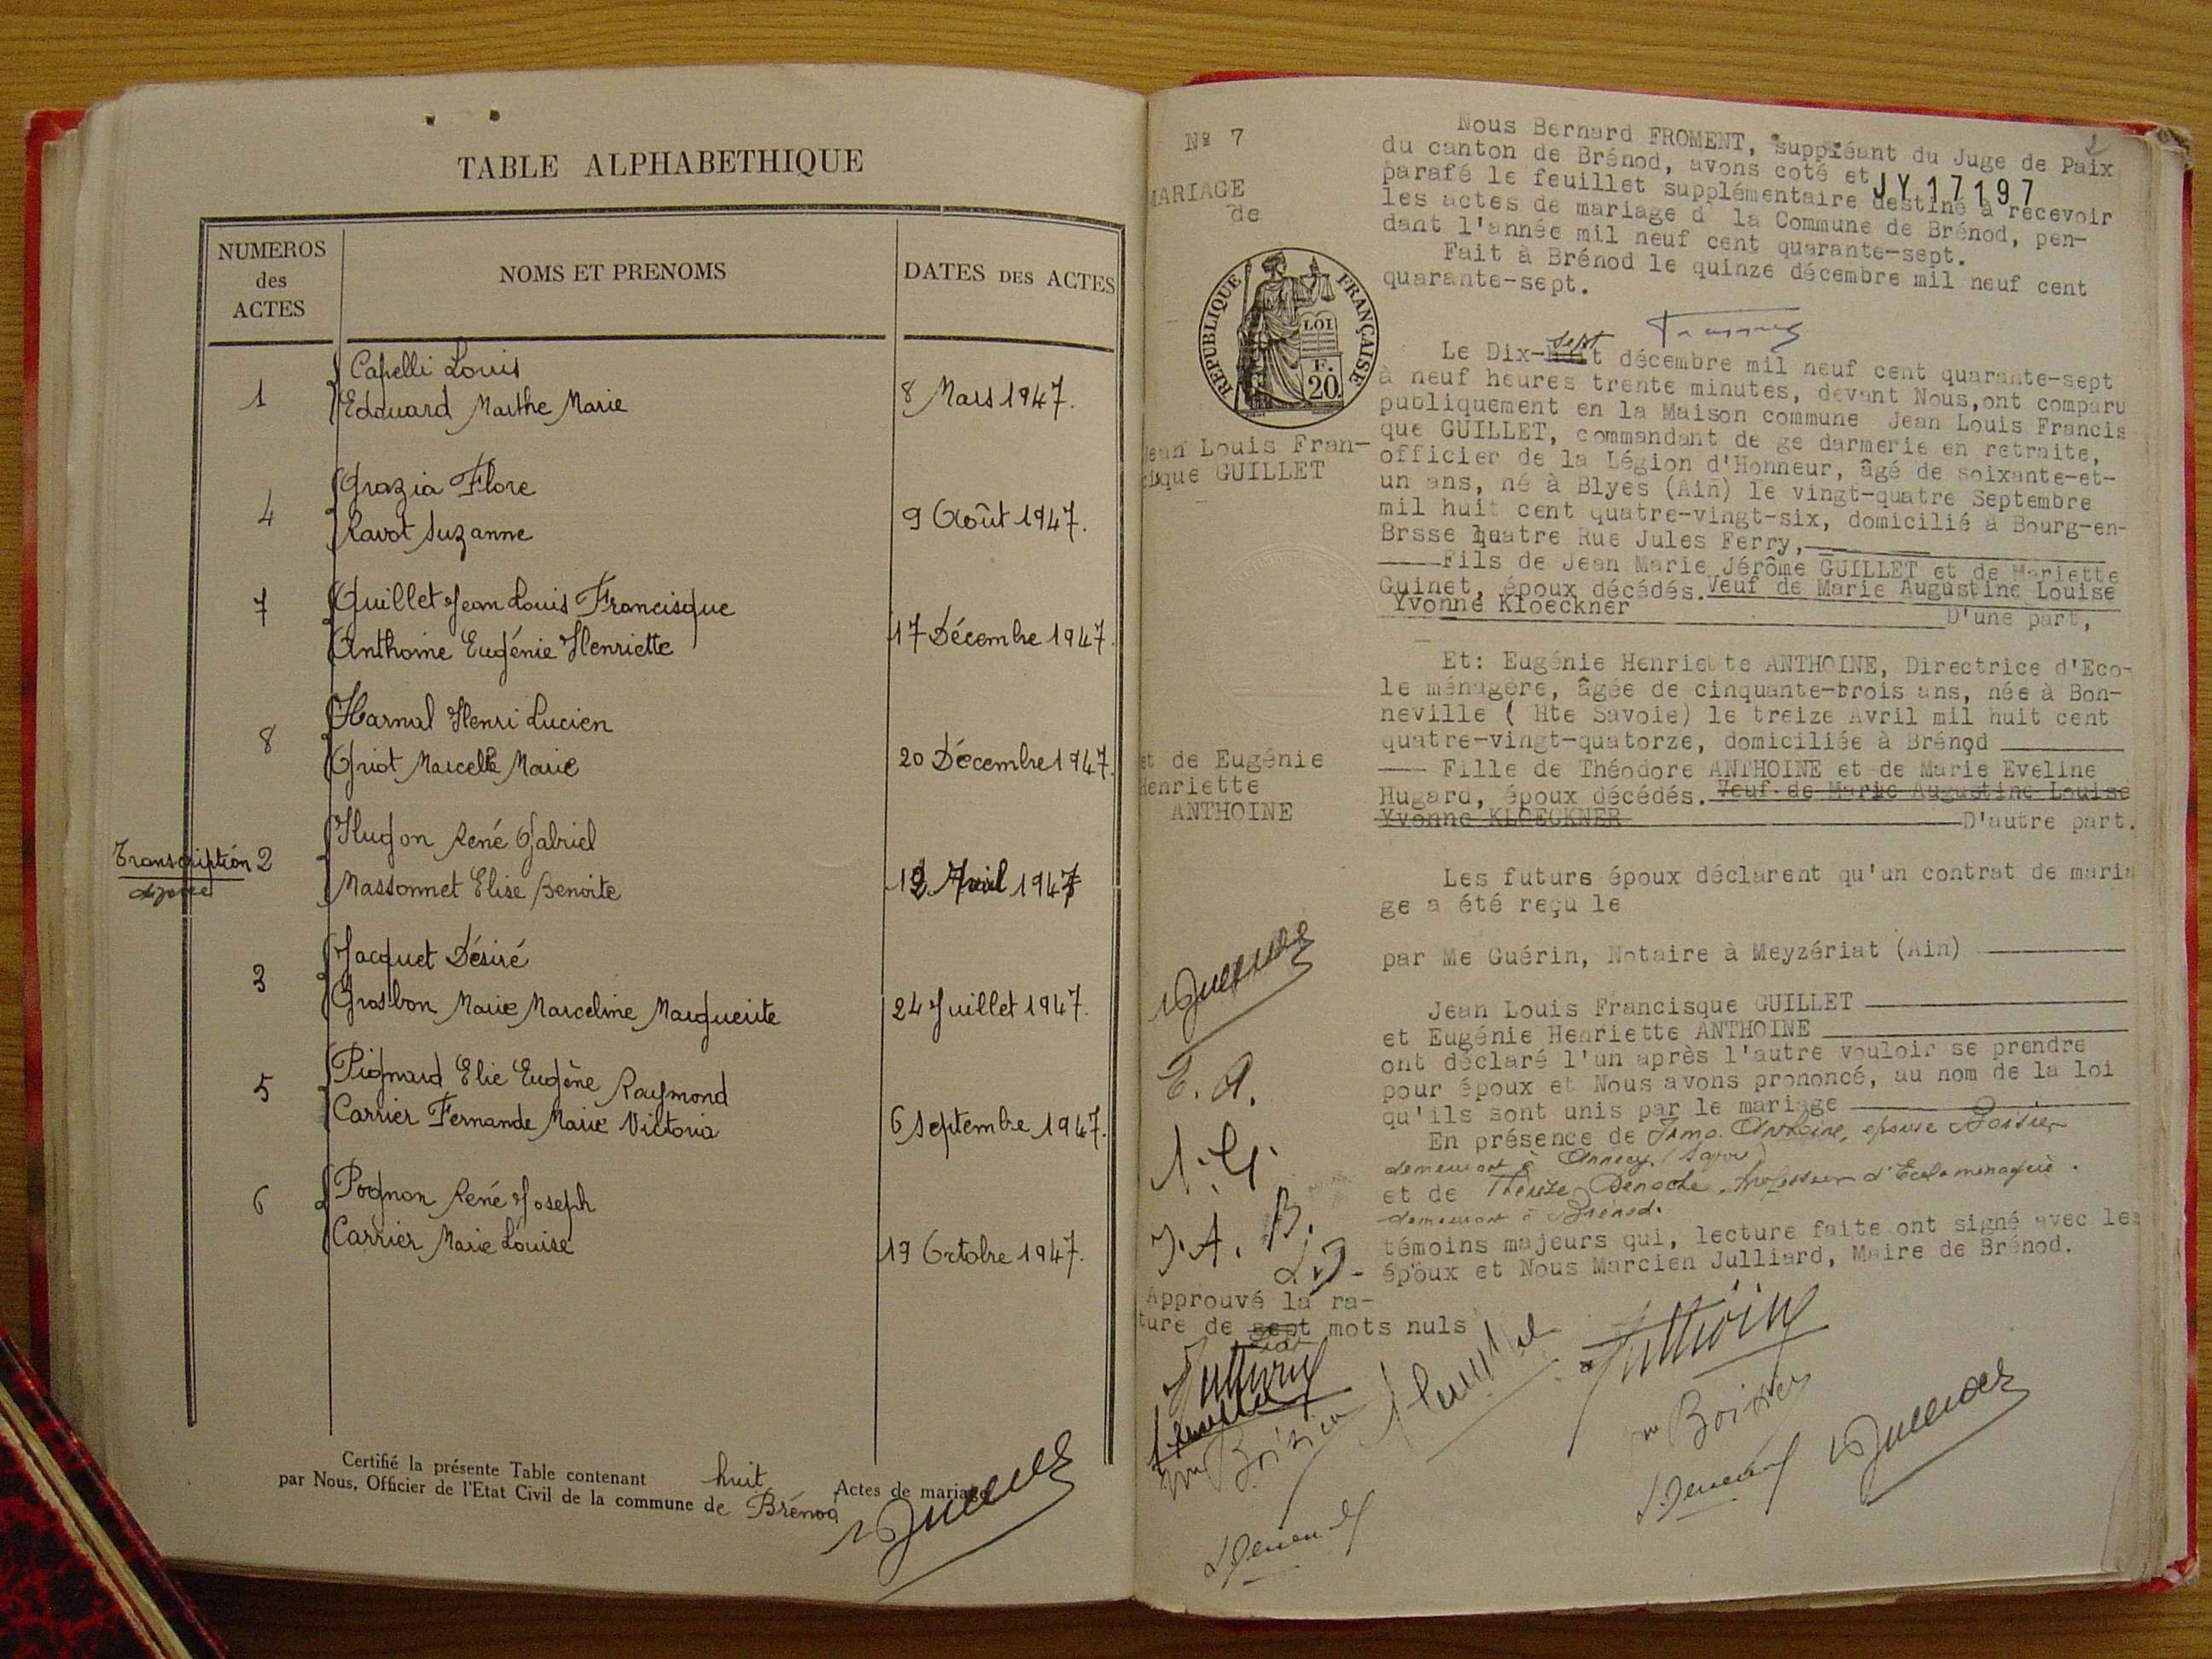 TABLE ALPHABETHIQUE
NUMEROS des ACTES
NOMS ET PRENOMS
DATES DES ACTES
Capelli Louis
1
Edouard Marthe Marie
8 Mars 1947.
Grazia Flore
4
Ravot Suzanne
9 Août 1947.
Guillet Jean Louis Francisque
7
Anthoine Eugénie Henriette
17 Décembre 1947.
Harnal Henri Lucien
8
Griot Marcelle Marie
20 Décembre 1947.
Hugon René Gabriel
Transcription 2
Massonnet Elise Benoite
12 Avril 1947
Jacquet Désiré
3
Grosbon Marie Marceline Marguerite
24 Juillet 1947.
Pignard Elie Eugène Raymond
5
Carrier Fernande Marie Victoria
6 Septembre 1947.
Pognon René Joseph
6
Carrier Marie Louise
19 Octobre 1947.
Certifié la présente Table contenant huit Actes de mariage
par Nous, Officier de l'Etat Civil de la commune de Brénod
Nº 7
MARIAGE
de
REPUBLIQUE FRANÇAISE
LOI
F.
20.
Jean Louis Fran-
cisque GUILLET
et de Eugénie
Henriette
ANTHOINE
E. A.
J. A. B.
Approuvé la ra-
ture de sept mots nuls
Nous Bernard FROMENT, suppléant du Juge de Paix
du canton de Brénod, avons coté et
JY 17197
parafé le feuillet supplémentaire destiné à recevoir
les actes de mariage d la Commune de Brénod, pen-
dant l'année mil neuf cent quarante-sept.
Fait à Brénod le quinze décembre mil neuf cent
quarante-sept.
sept
Le Dix-huit décembre mil neuf cent quarante-sept
à neuf heures trente minutes, devant Nous,ont comparu
publiquement en la Maison commune Jean Louis Francis
que GUILLET, commandant de ge darmerie en retraite,
officier de la Légion d'Honneur, âgé de soixante-et-
un ans, né à Blyes (Ain) le vingt-quatre Septembre
mil huit cent quatre-vingt-six, domicilié à Bourg-en-
Brsse quatre Rue Jules Ferry,
Fils de Jean Marie Jérôme GUILLET et de Mariette
Guinet, époux décédés. Veuf de Marie Augustine Louise
Yvonne Kloeckner
D'une part,
Et: Eugénie Henriette ANTHOINE, Directrice d'Eco-
le ménagère, âgée de cinquante-trois ans, née à Bon-
neville ( Hte Savoie) le treize Avril mil huit cent
quatre-vingt-quatorze, domiciliée à Brénod
Fille de Théodore ANTHOINE et de Marie Eveline
Hugard, époux décédés. Veuf de Marie Augustine Louise
Yvonne KLOECKNER
D'autre part.
Les futurs époux déclarent qu'un contrat de maria
ge a été reçu le
par Me Guérin, Notaire à Meyzériat (Ain)
Jean Louis Francisque GUILLET
et Eugénie Henriette ANTHOINE
ont déclaré l'un après l'autre vouloir se prendre
pour époux et Nous avons prononcé, au nom de la loi
qu'ils sont unis par le mariage
En présence de Irma Anthoine, épouse Boisier
demeurant à Annecy
et de Thérèze Denoche, Professeur d'Ecole ménagère.
demeurant à Brénod.
témoins majeurs qui, lecture faite ont signé avec les
époux et Nous Marcien Julliard, Maire de Brénod.